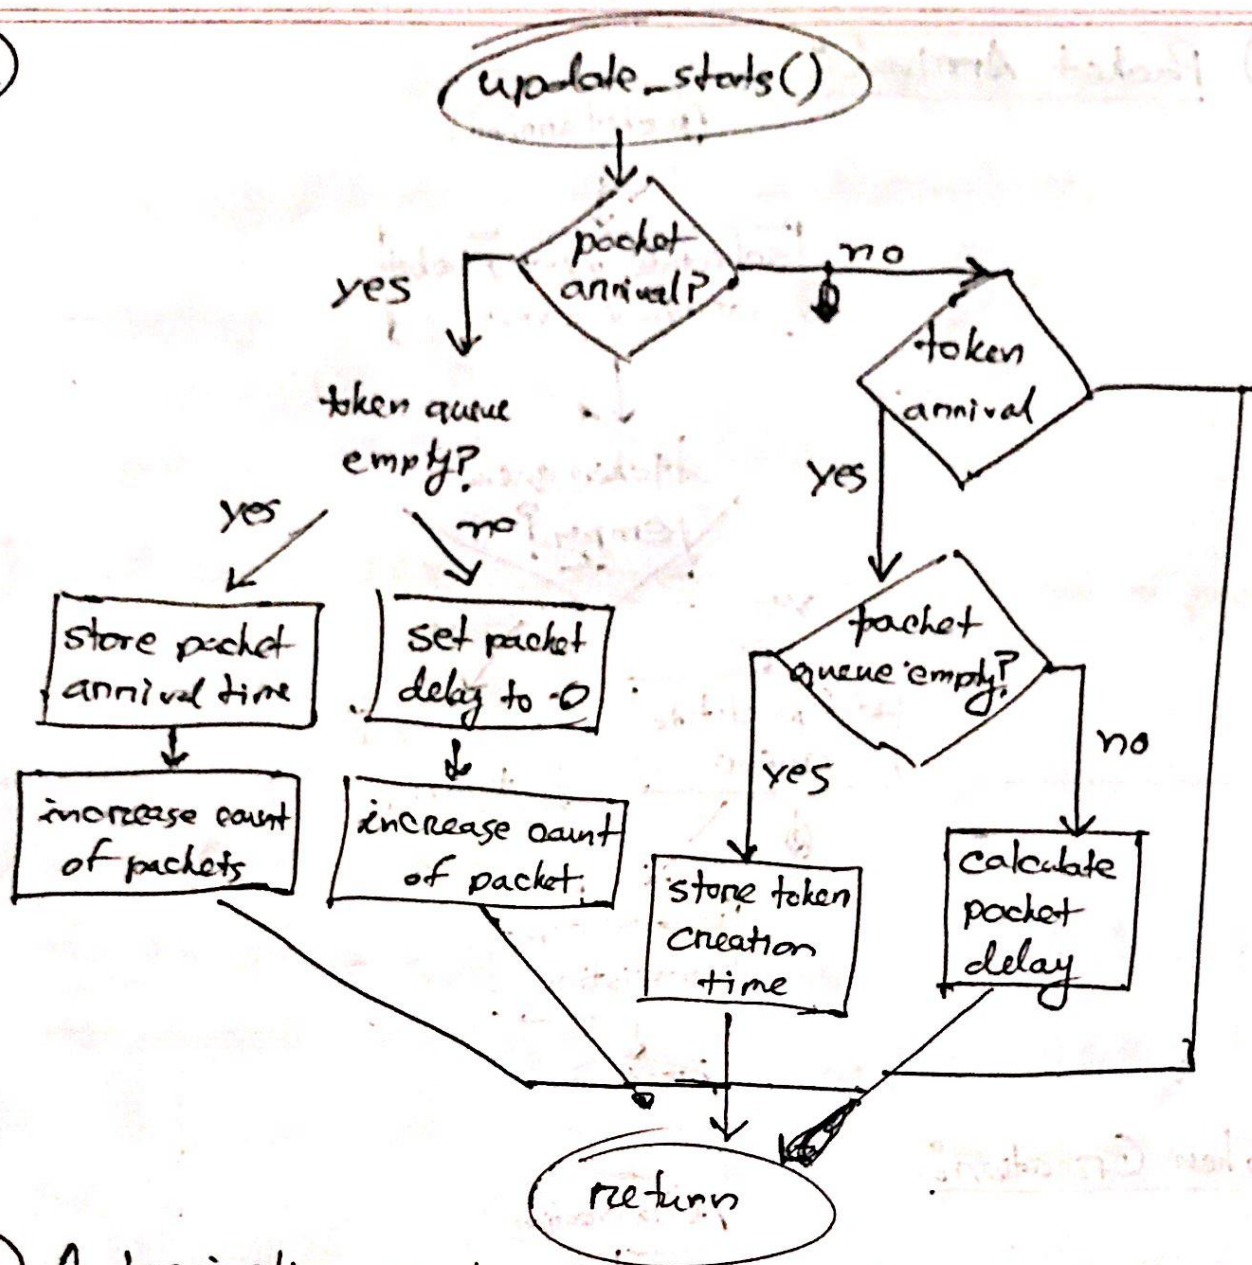 update_stats()
packet
arrival?
yes
no
token
arrival
token queue
empty?
yes
yes
no
store packet
arrival time
set packet
delay to 0
packet
queue empty?
yes
no
increase count
of packets
increase count
of packet
store token
creation
time
calculate
packet
delay
return